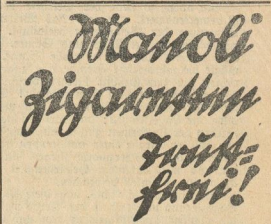 Manoli
Zigaretten
Trust=
frei!